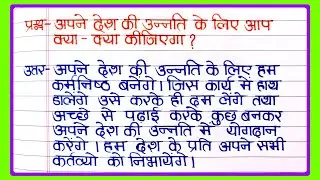 प्रश्न- अपने देश की उन्नति के लिए आप
क्या - क्या कीजिएगा ?
उत्तर- अपने देश की उन्नति के लिए हम
कर्मनिष्ठ बनेगे । जिस कार्य में हाथ
डालेंगे उसे करके ही दम लेंगे तथा
अच्छे से पढ़ाई करके कुछ बनकर
अपने देश की उन्नति में योगदान
करेंगे । हम देश के प्रति अपने सभी
कर्तव्यो को निभायेंगे ।